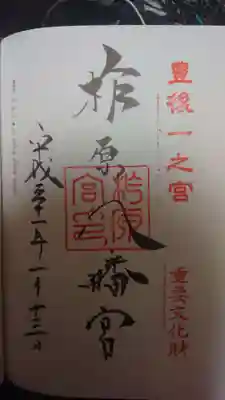 豊後一之宮
重要文化財
柞原八幡宮
柞原宮印
平成三十一年一月十三日